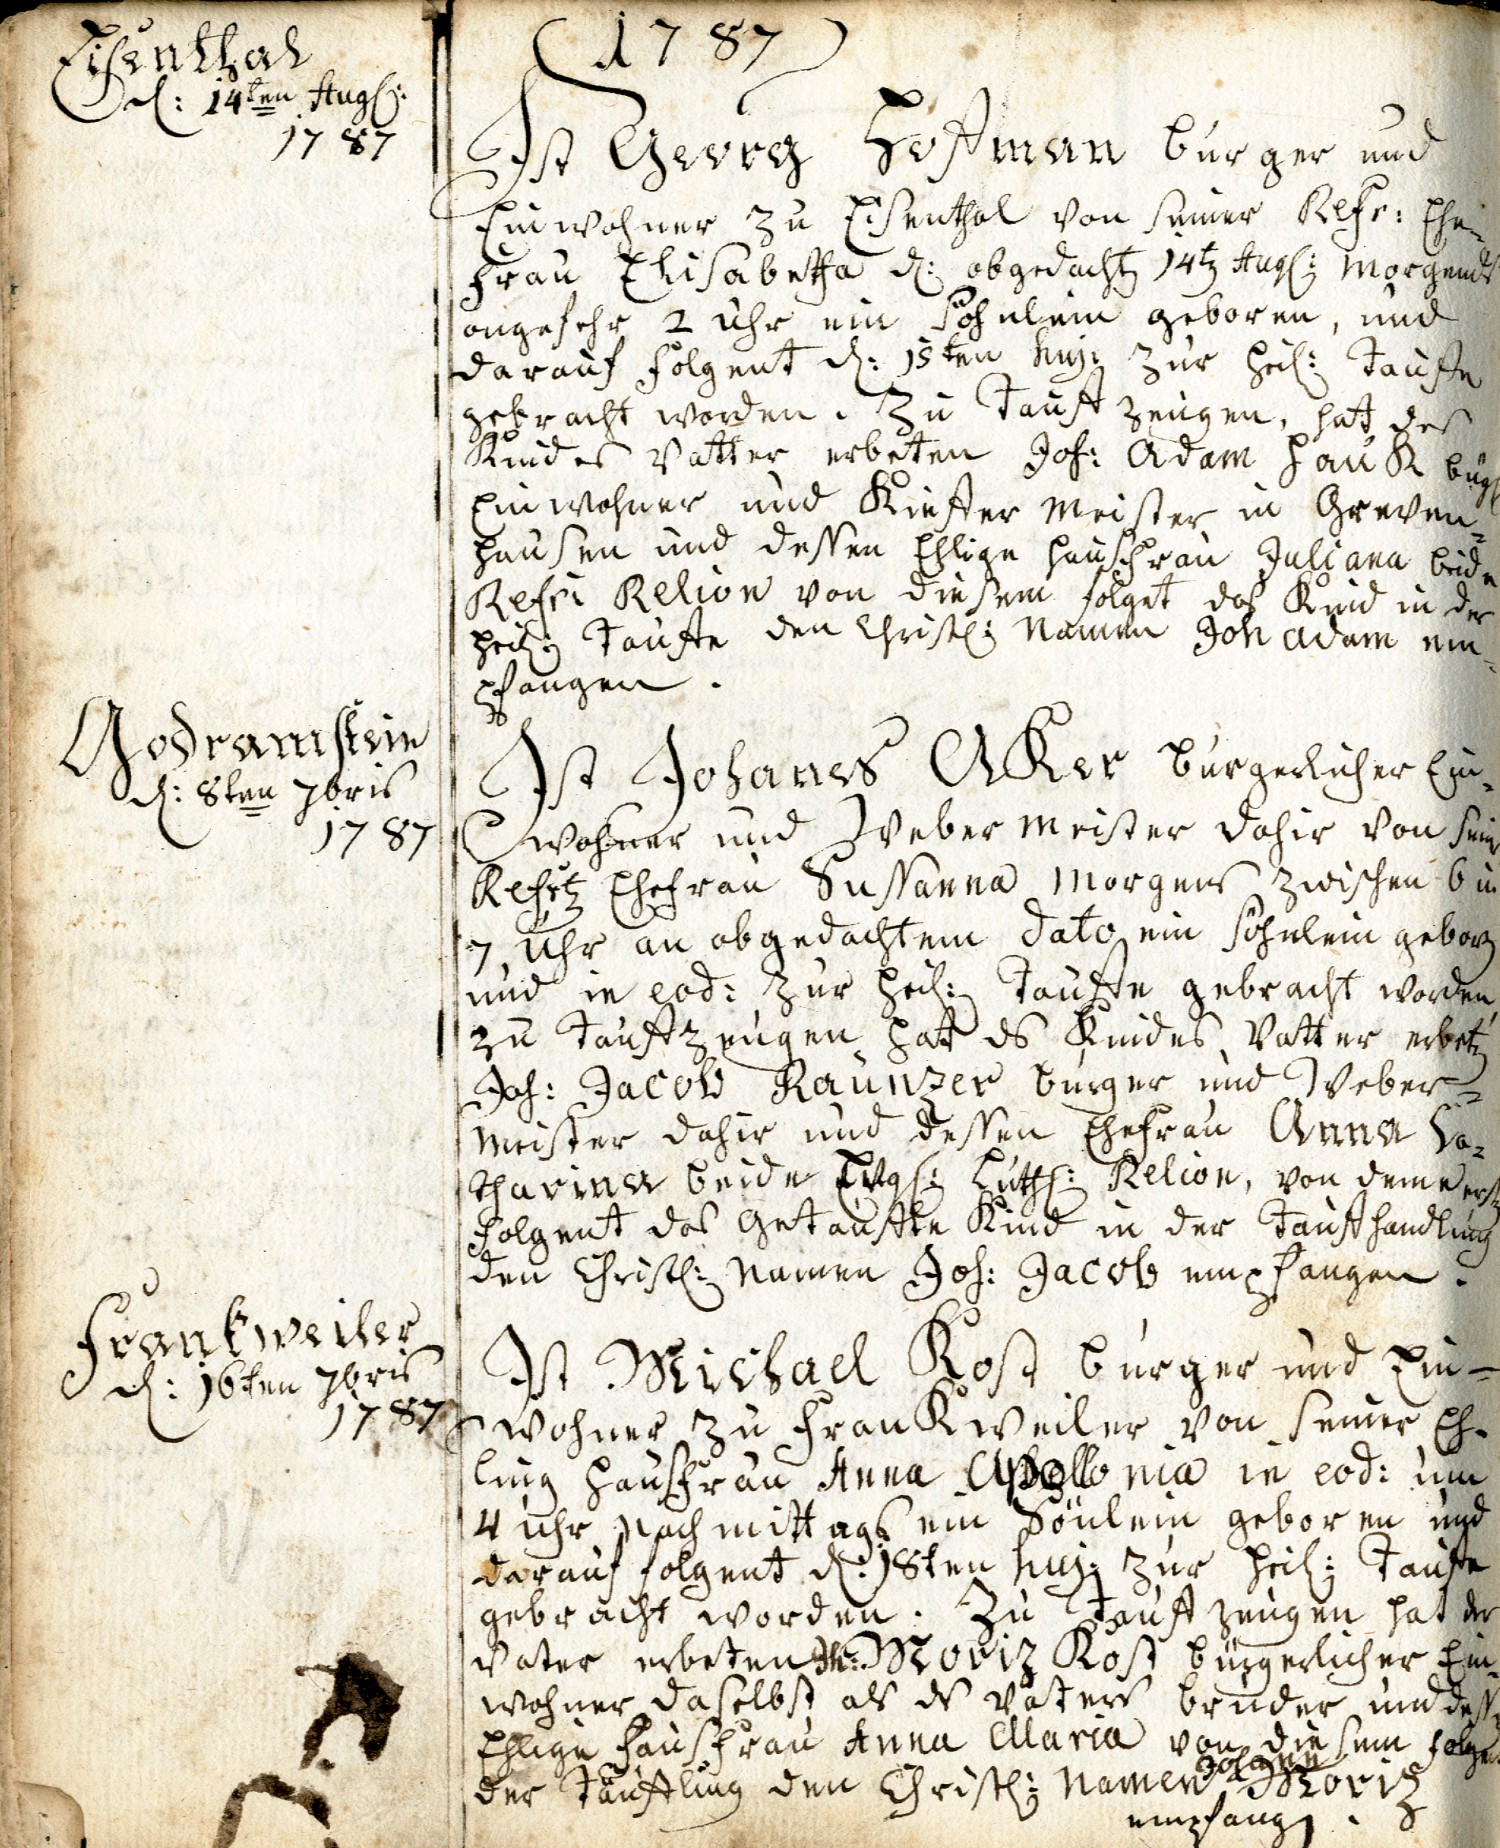 (1787)
Eisenthal
d: 14ten Augs:
1787
Ist Georg Hoffman burger und
Einwohner zu Eisenthal von seiner Refr: Ehe-
frau Elisabetha d: obgedacht 14t Augs: Morgends
ongefehr 2 Uhr ein Söhnlein geboren, und
darauf folgent d: 15ten huj: zur heil: Tauffe
gebracht worden. Zu Tauffzeugen, hatt des
Kindes Vatter erbeten Joh: Adam Hauk
Einwohner und Kieffer Meister in Greven-
hausen und dessen Ehlige hausfrau Juliana beide
Refr: Relion von diesem folget das Kind in der
heil: Tauffe den Christl: Namen Joh Adam em-
pfangen.
Godramstein
d: 8ten 7bris
1787
Ist Johanes AKer burgerlicher Ein-
wohner und Weber Meister dahir von seiner
Refrt Ehefrau Susanna Morgens zwischen 6 u
7 Uhr an obgedachtem dato ein Söhnlein geborn
und in eod: zur heil: Tauffe gebracht worden
zu Tauffzeugen hatt ds Kindes Vatter erbetn
Joh: Jacob Raunzer burger und Weber-
Meister dahir und dessen Ehefrau Anna Ca-
tharina beide Evgl: Luthl: Relion, von deme erst
folgent das Getauffte Kind in der Tauffhandlung
den Christl: Namen Joh: Jacob empfangen.
Frankweiler
d: 16ten 7bris
1787
Ist Michael Kost burger und Ein-
wohner zu FranKweiler von seiner Eh-
ling Hausfrau Anna Apollonia in eod: um
4 Uhr Nachmittags ein Sönlein geboren und
darauf folgent d: 18ten huj: zur heil: Tauffe
gebracht worden. Zu Tauffzeugen hat der
Vater erbeten Moriz Kost bürgerlicher Ein-
wohner daselbst als ds Vaters bruder und dess
Ehlige Hausfrau Anna Maria von diesem folgen
der Täuffling den Christl: Namen Johann Moriz
empfang.